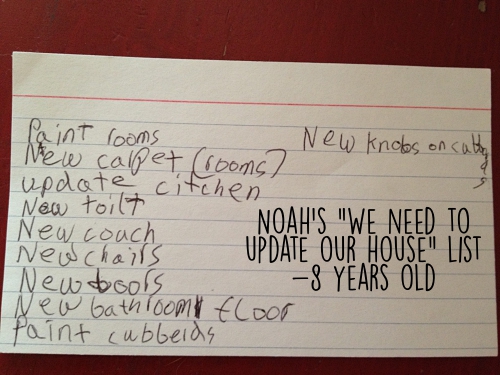 Paint rooms
New carpet (rooms)
update citchen
New toilt
New coach
New chairs
New doors
New bathroom floor
Paint cubberds
New knobs on cubbrds
NOAH'S "WE NEED TO
UPDATE OUR HOUSE" LIST
-8 YEARS OLD